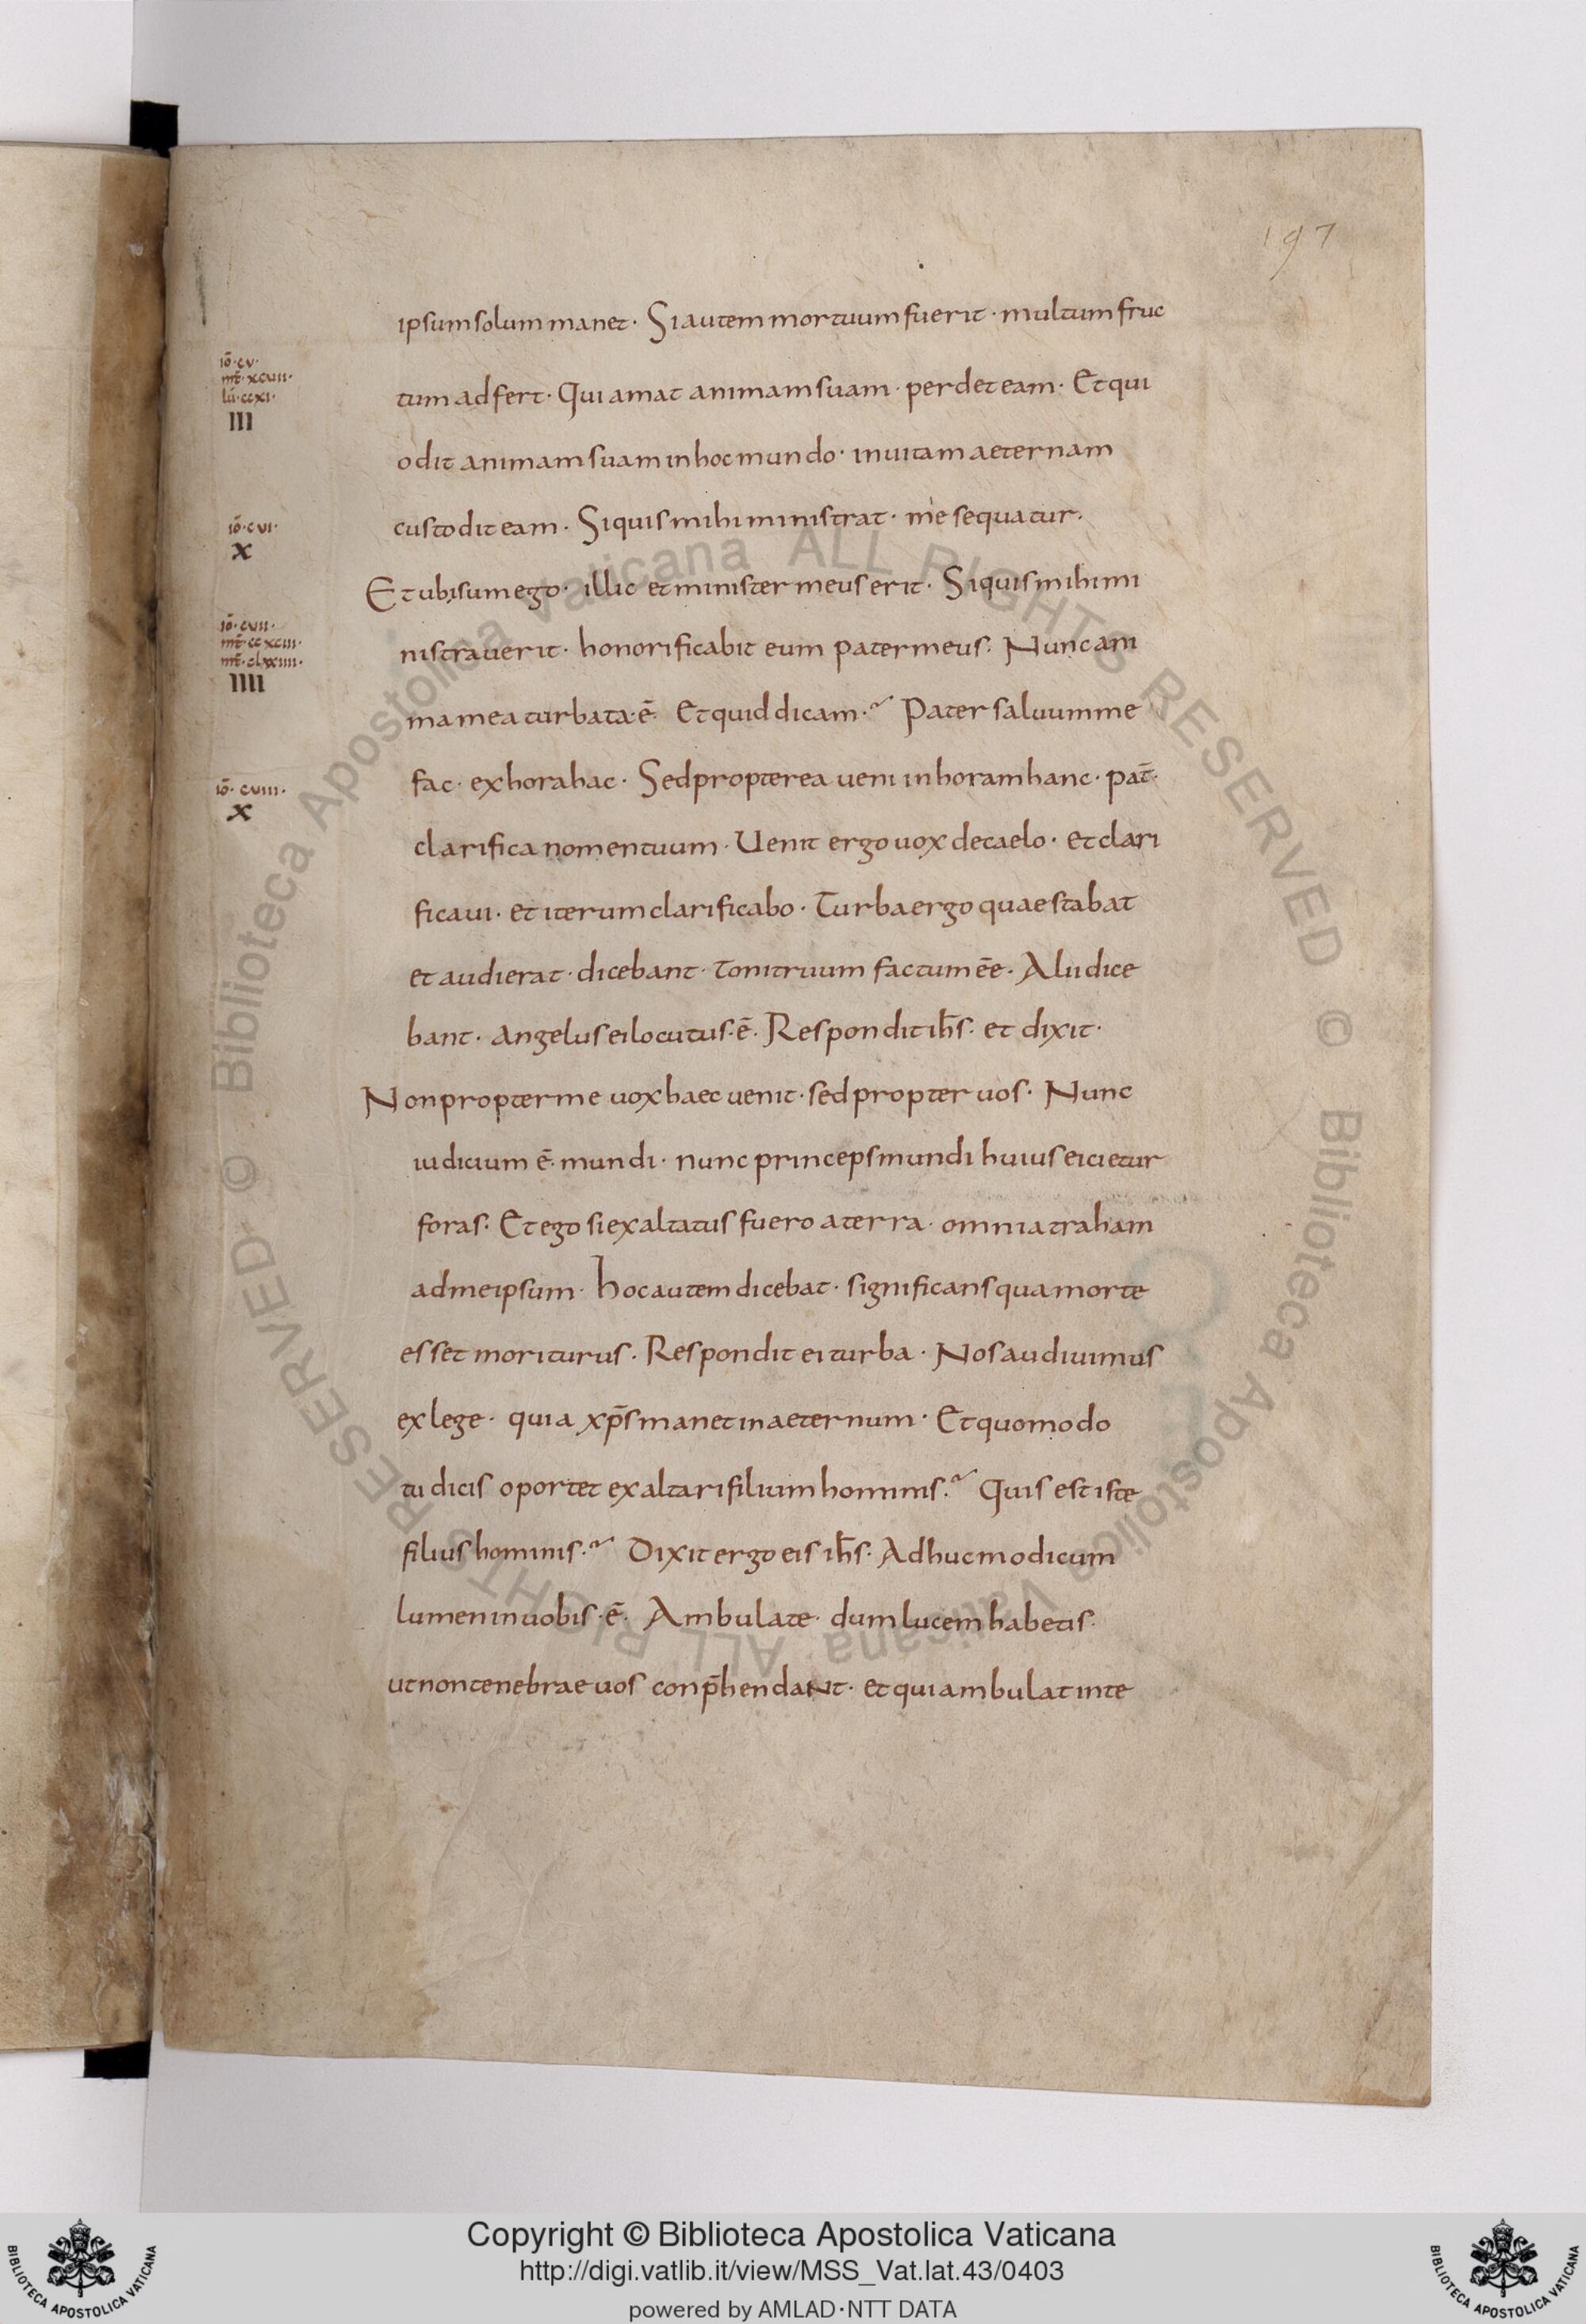 197
ipsum solum manet · Si autem mortuum fuerit · multum fruc
iō · cv ·
mt̄ · xcvii ·
lū · ccxi ·
III
tum adfert · Qui amat animam suam · perdet eam · Et qui
odit animam suam in hoc mundo · in uitam aeternam
custodit eam · Si quis mihi ministrat · me sequatur ·
iō · cvi ·
X
Et ubi sum ego · illic et minister meus erit · Si quis mihi mi
iō · cvii ·
mt̄ · ccxciii ·
mt̄ · clxxiiii ·
IIII
nistrauerit · honorificabit eum pater meus · Nunc ani
ma mea turbata · ē · Et quid dicam ·? Pater saluum me
fac · ex hora hac · Sed propterea ueni in horam hanc · pat̄ ·
iō · cviii ·
X
clarifica nomen tuum · Uenit ergo uox de caelo · et clari
ficaui · et iterum clarificabo · Turba ergo quae stabat
et audierat · dicebant · tonitruum factum ēe · Alii dice
bant · angelus ei locutus · ē · Respondit ih̄s · et dixit ·
Non propter me uox haec uenit · sed propter uos · Nunc
iudicium ē · mundi · nunc princeps mundi huius eicietur
foras · Et ego si exaltatus fuero a terra · omnia traham
ad me ipsum · hoc autem dicebat · significans qua morte
esset moriturus · Respondit ei turba · Nos audiuimus
ex lege · quia xp̄s manet in aeternum · Et quomodo
tu dicis oportet exaltari filium hominis ·? Quis est iste
filius hominis ·? Dixit ergo eis ih̄s · Adhuc modicum
lumen in uobis · ē · Ambulate · dum lucem habetis ·
ut non tenebrae uos conp̄hendant · et qui ambulat in te
© Biblioteca Apostolica Vaticana ALL RIGHTS RESERVED © Biblioteca Apostolica Vaticana ALL RIGHTS RESERVED
Copyright © Biblioteca Apostolica Vaticana
http://digi.vatlib.it/view/MSS_Vat.lat.43/0403
powered by AMLAD·NTT DATA
BIBLIOTECA APOSTOLICA VATICANA
BIBLIOTECA APOSTOLICA VATICANA